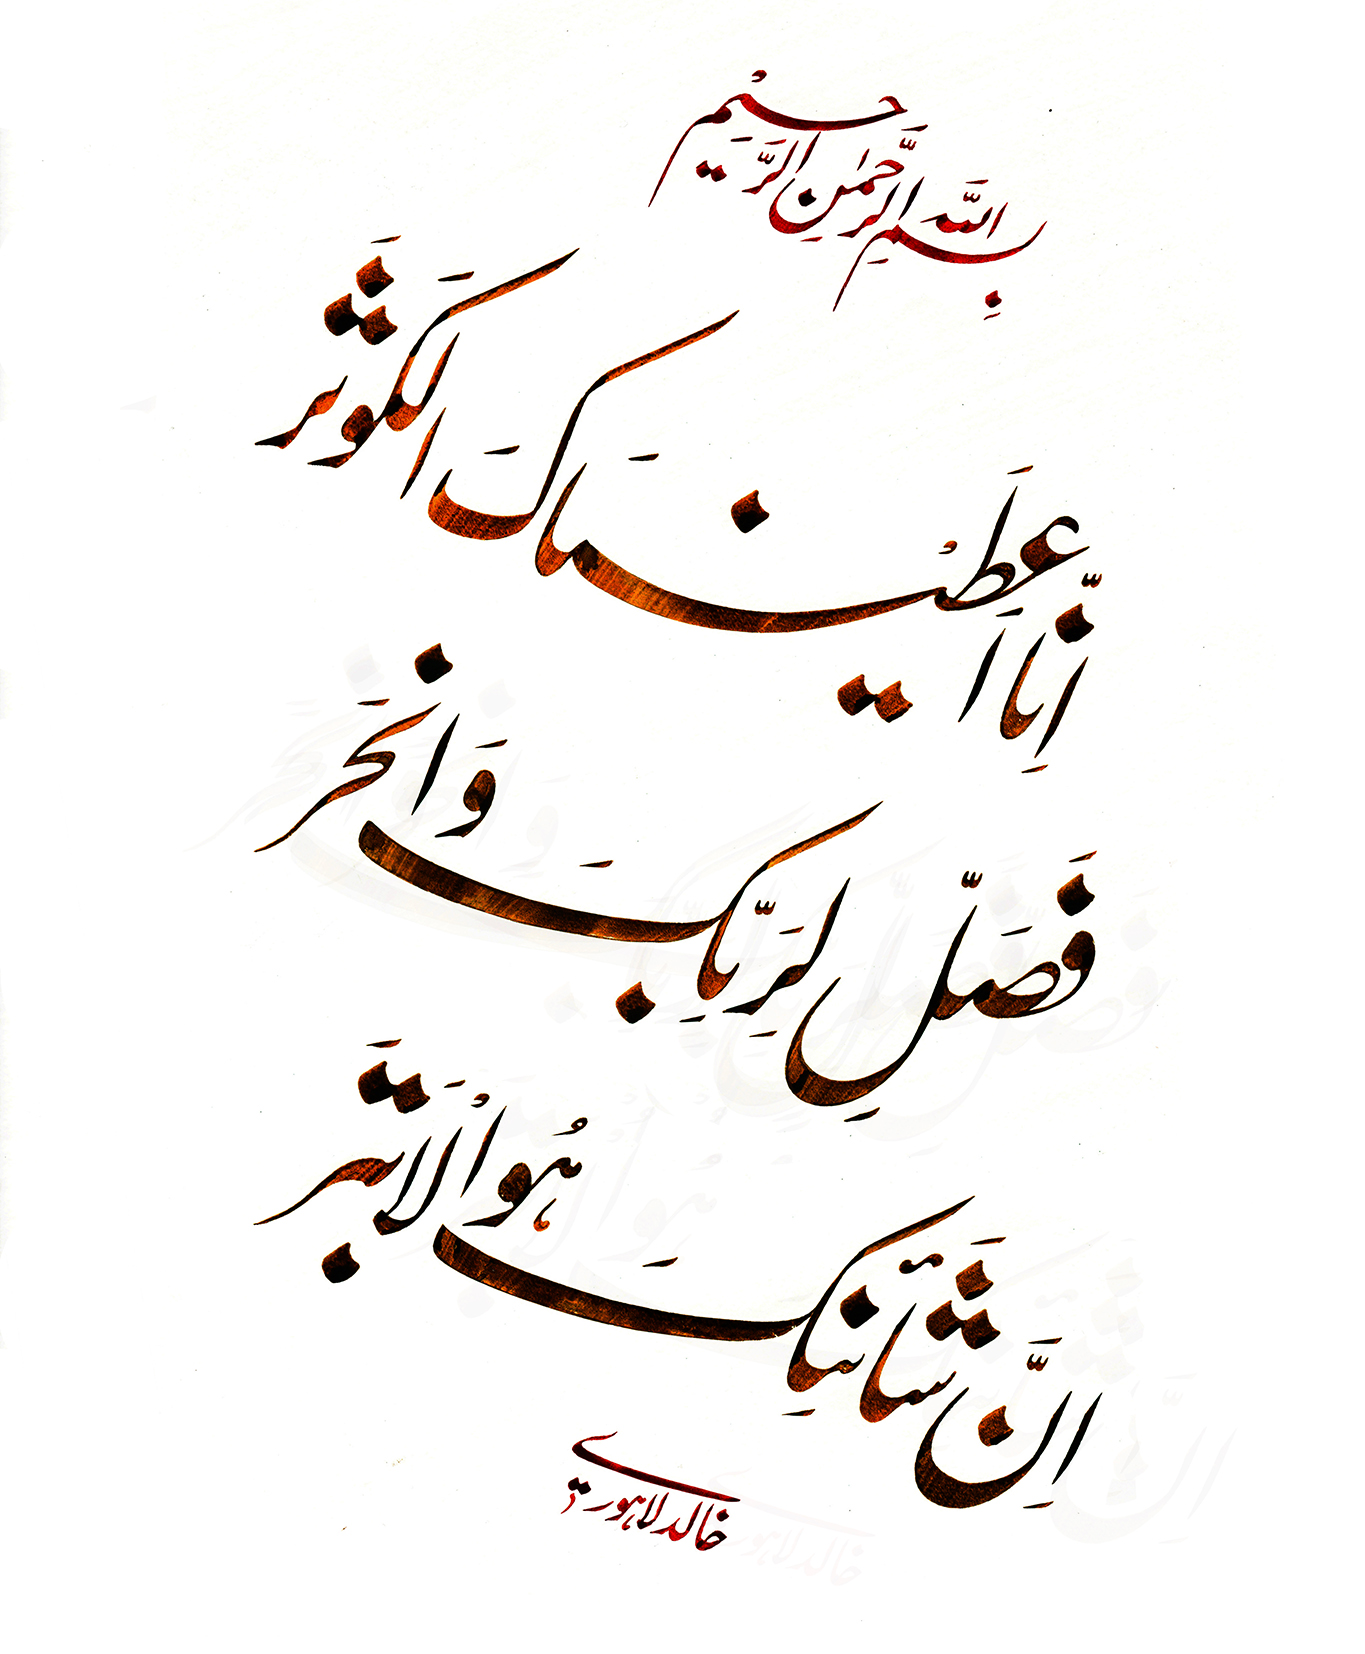 بِسْمِ اللَّهِ الرَّحْمٰنِ الرَّحِیْمِ
اِنَّا اَعْطَیْنٰکَ الْکَوْثَرَ
فَصَلِّ لِرَبِّکَ وَانْحَرْ
اِنَّ شَانِئَکَ هُوَ الْاَبْتَرُ
خالد لاہوری